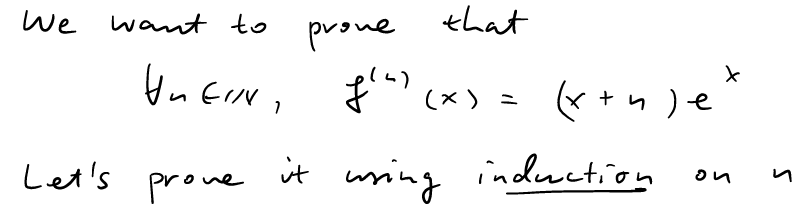 We want to prove that
∀n ∈ ℕ, f⁽ⁿ⁾(x) = (x + n) eˣ
Let's prove it using induction on n